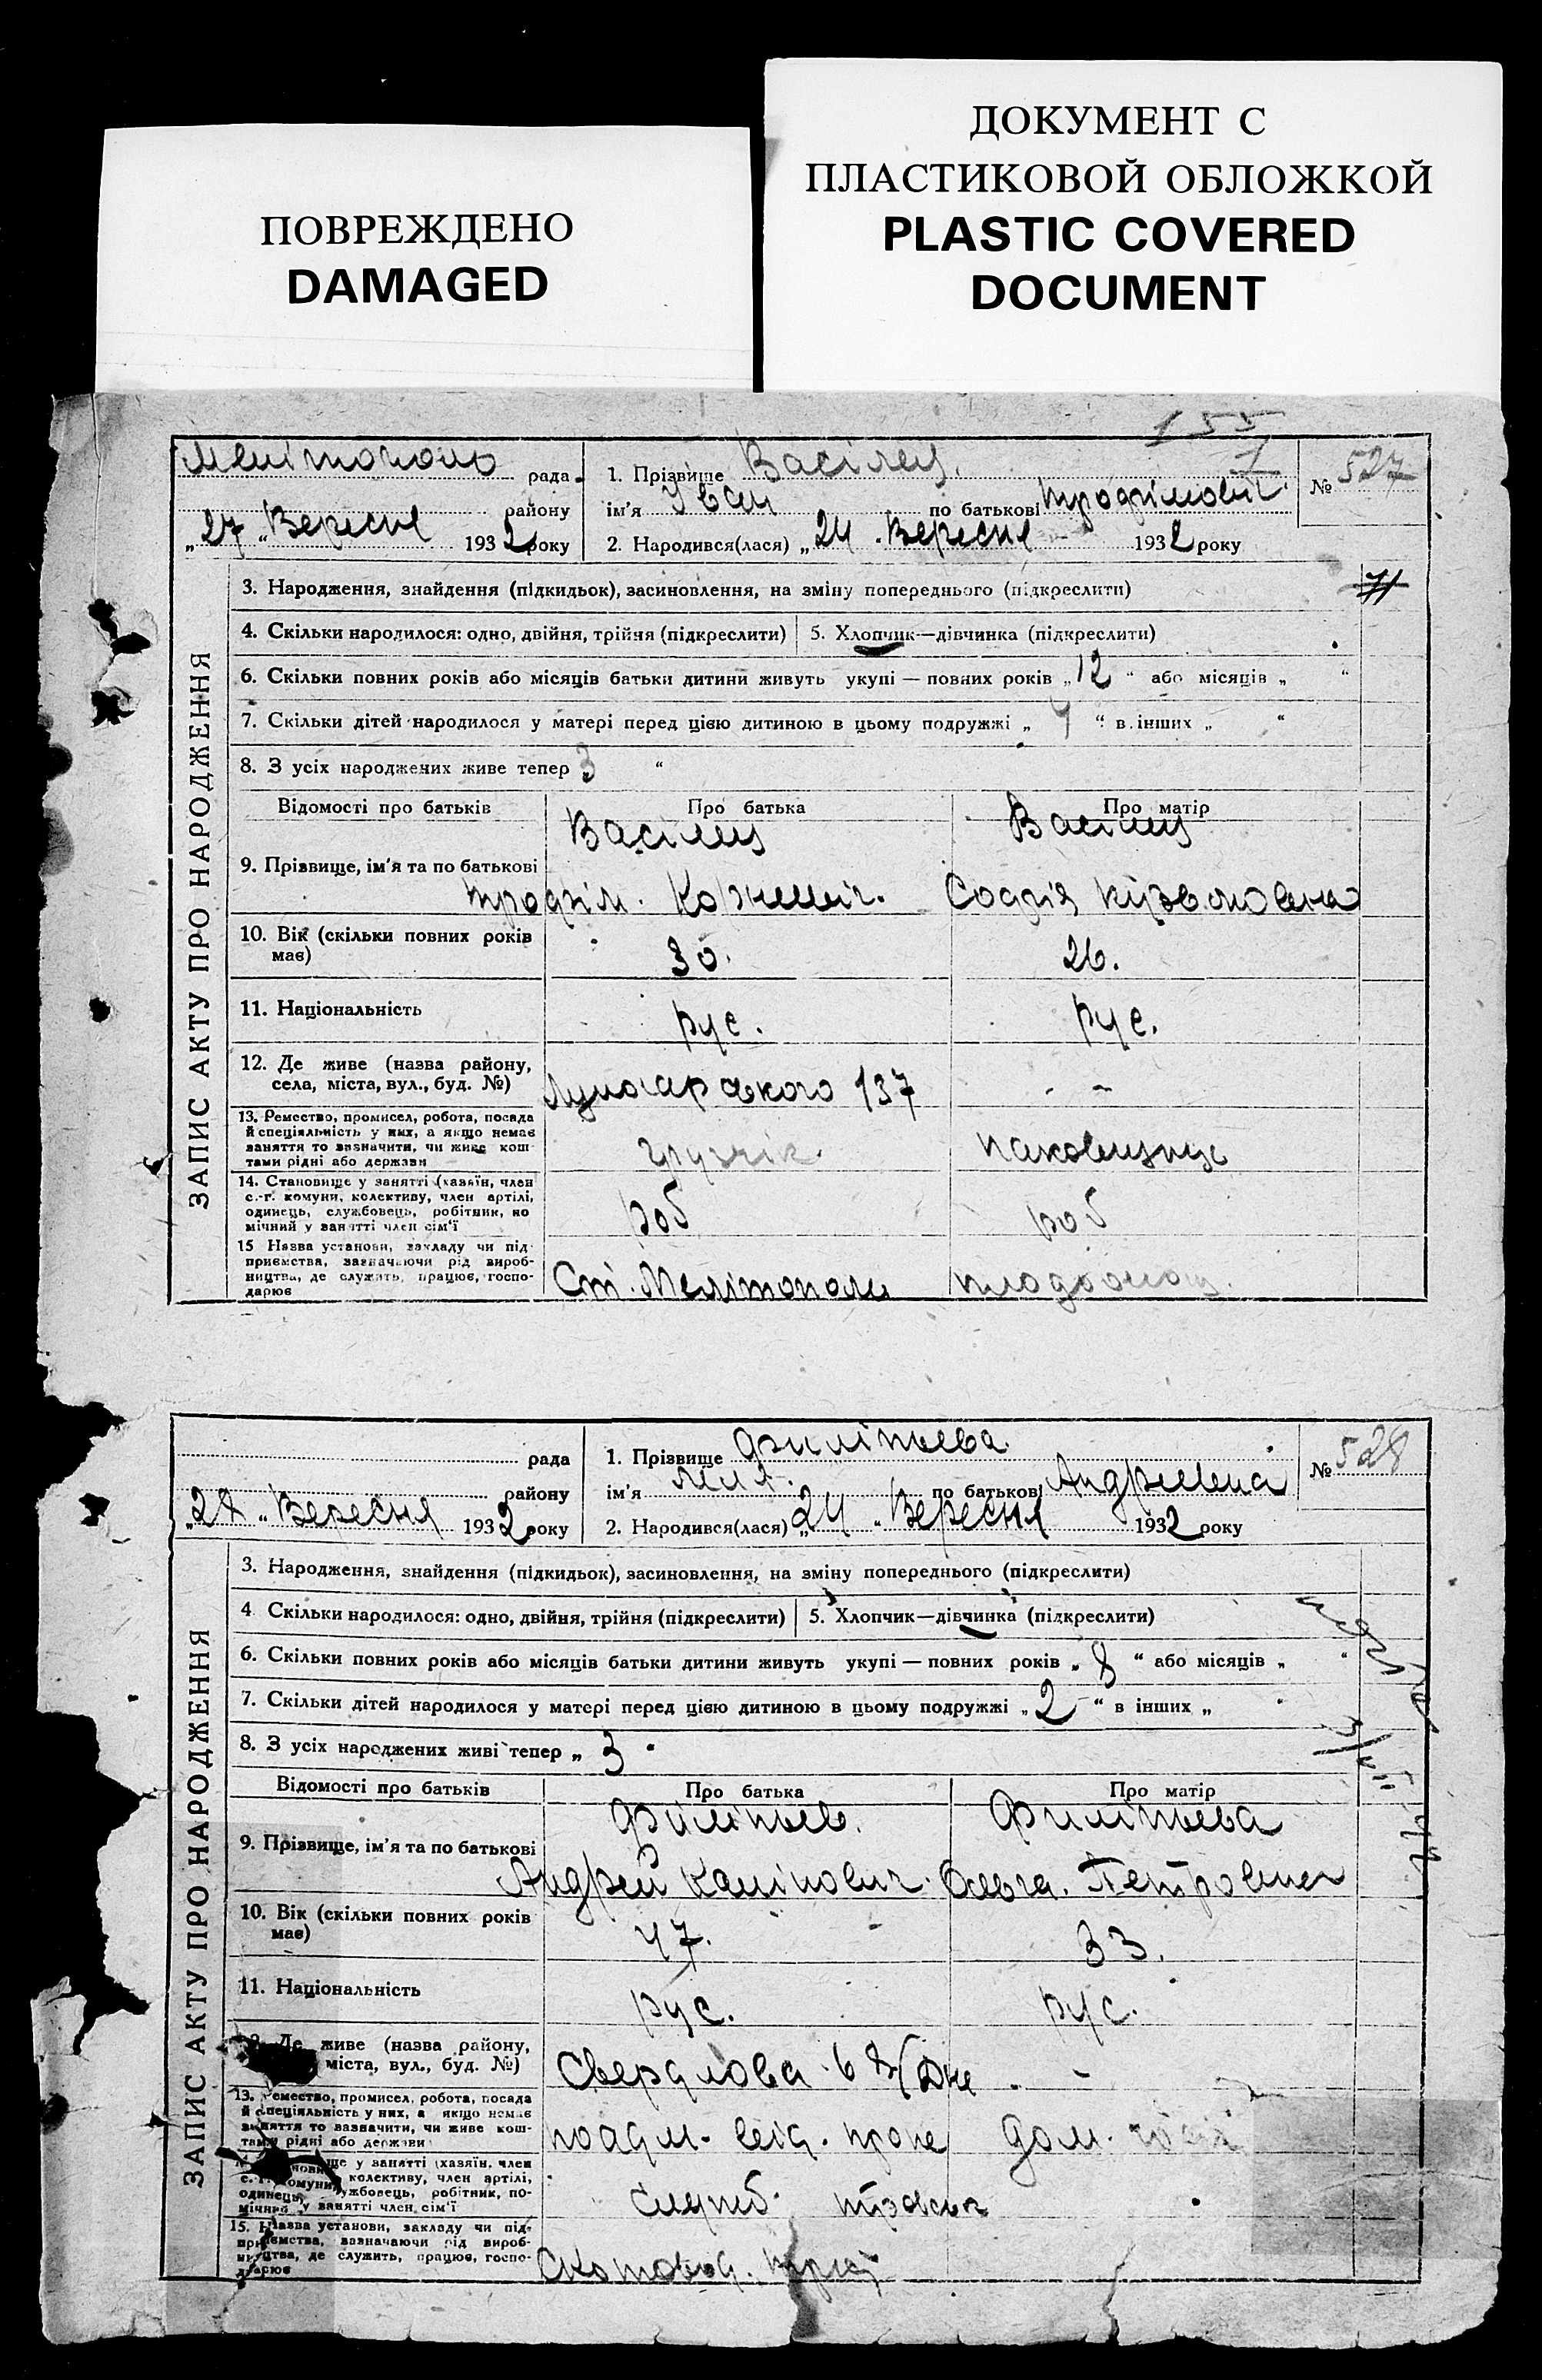 ПОВРЕЖДЕНО
DAMAGED
ДОКУМЕНТ С
ПЛАСТИКОВОЙ ОБЛОЖКОЙ
PLASTIC COVERED
DOCUMENT
155
Мелітополь рада
району
„27“ Вересня 1932 року
1. Прізвище Васілец
ім'я Іван по батькові Трофімович
2. Народився(лася) „24 Вересня 1932 року
№ 527
ЗАПИС АКТУ ПРО НАРОДЖЕННЯ
3. Народження, знайдення (підкидьок), засиновлення, на зміну попереднього (підкреслити)
4. Скільки народилося: одно, двійня, трійня (підкреслити)
5. Хлопчик—дівчинка (підкреслити)
6. Скільки повних років або місяців батьки дитини живуть укупі — повних років „12“ або місяців „ “
7. Скільки дітей народилося у матері перед цією дитиною в цьому подружжі „4“ в інших „ “
8. З усіх народжених живе тепер 3 “
Відомості про батьків Про батька Про матір
Васілец Васілец
9. Прізвище, ім'я та по батькові
Трофім. Софія
10. Вік (скільки повних років має) 30. 26.
11. Національність рус. рус.
12. Де живе (назва району, села, міста, вул., буд. №) Луначарского 137 - -
13. Ремество, промисел, робота, посада
й спеціяльність у них, а якщо немає
заняття то вазначити, чи живе кош
тами рідні або держави
грузчік. паковщица
14. Становище у занятті (хазяїн, член
с.-г. комуни, колективу, член артілі,
одинець, службовець, робітник, по
мічний у занятті член сім'ї
роб роб
15 Назва установи, закладу чи під
приємства, зазначаючи рід вироб-
ництва, де служить, працює, госпо-
дарює
Ст. Мелітополь
рада
району
„28“ Вересня 1932 року
1. Прізвище Филіпьева
ім'я по батькові Андреевна
2. Народився(лася) „24“ Вересня 1932 року
№ 528
ЗАПИС АКТУ ПРО НАРОДЖЕННЯ
3. Народження, знайдення (підкидьок), засиновлення, на зміну попереднього (підкреслити)
4. Скільки народилося: одно, двійня, трійня (підкреслити)
5. Хлопчик—дівчинка (підкреслити)
6. Скільки повних років або місяців батьки дитини живуть укупі — повних років „8“ або місяців „ “
7. Скільки дітей народилося у матері перед цією дитиною в цьому подружжі „2“ в інших „ “
8. З усіх народжених живі тепер „ 3 “
Відомості про батьків Про батька Про матір
Филіпьев. Филіпьева
9. Прізвище, ім'я та по батькові
Андрей Ольга. Петровна
10. Вік (скільки повних років має) 47. 33.
11. Національність рус. рус.
12. Де живе (назва району, міста, вул., буд. №) Свердлова -
13. Ремество, промисел, робота, посада
й спеціяльність у них, а якщо немає
заняття то вазначити, чи живе кош-
тами рідні або держави
дом.
ще у занятті (хазяїн, член
с.-г. комуни, колективу, член артілі,
одинець, службовець, робітник, по-
мічний у занятті член сім'ї
служб.
15. Назва установи, закладу чи під-
приємства, вазначаючи рід вироб-
ництва, де служить, працює, госпо-
дарює
Скотовод.